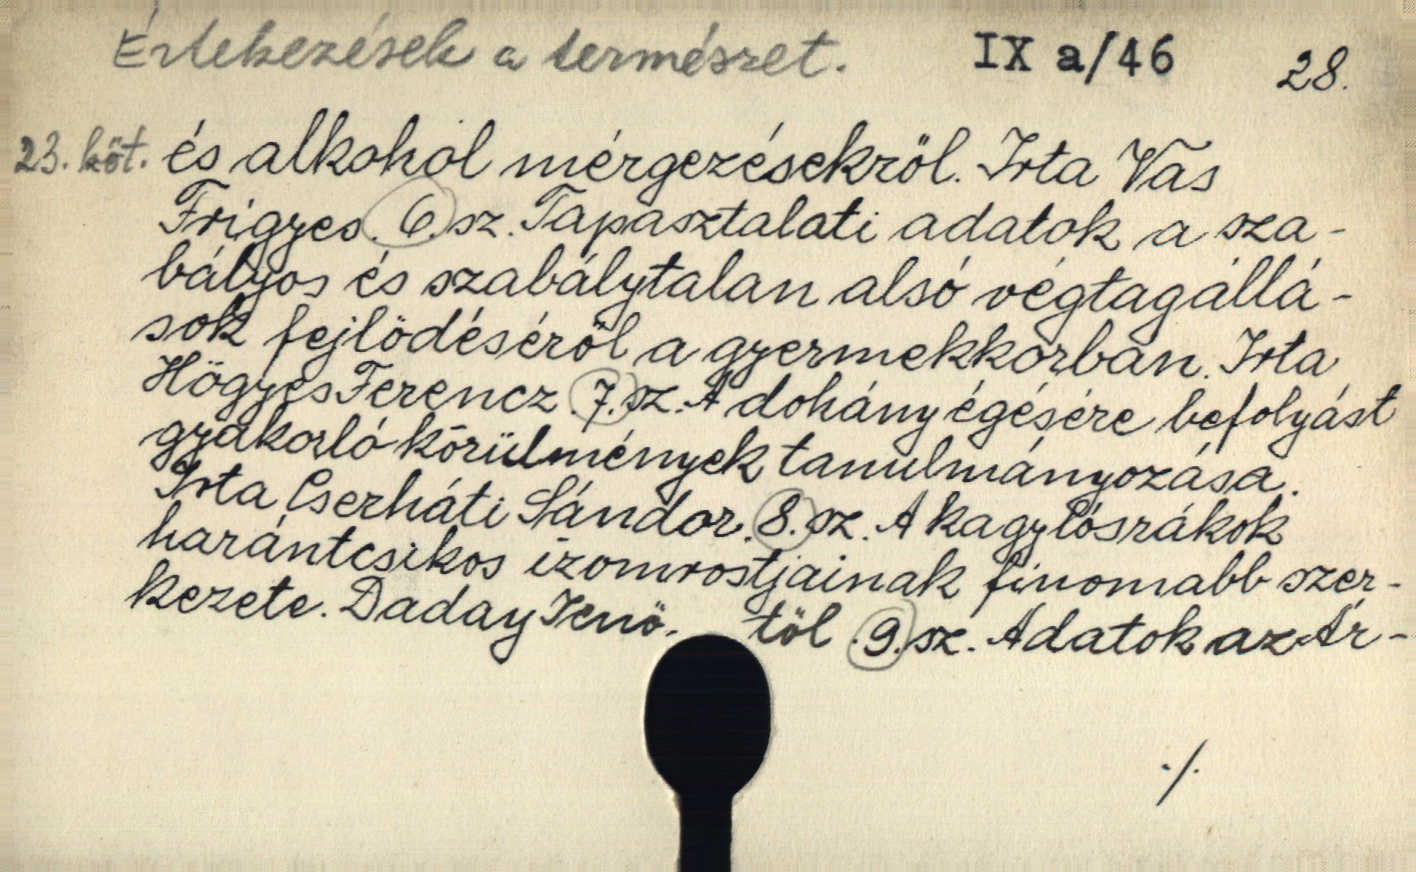 Értekezések a természet. IX a/46 28.
23. köt. és alkohol mérgezésekről. Irta Vas
Frigyes. 6. sz. Tapasztalati adatok a sza-
bályos és szabálytalan alsó végtagállá-
sok fejlödéséről a gyermekkorban. Irta
Högyes Ferencz. 7. sz. A dohány égésére befolyást
gyakorló körülmények tanulmányozása.
Irta Cserháti Sándor. 8. sz. A kagylósrákok
harántcsikos izomrostjainak finomabb szer-
kezete. Daday Jenö- töl. 9. sz. Adatok az Ár-
./.